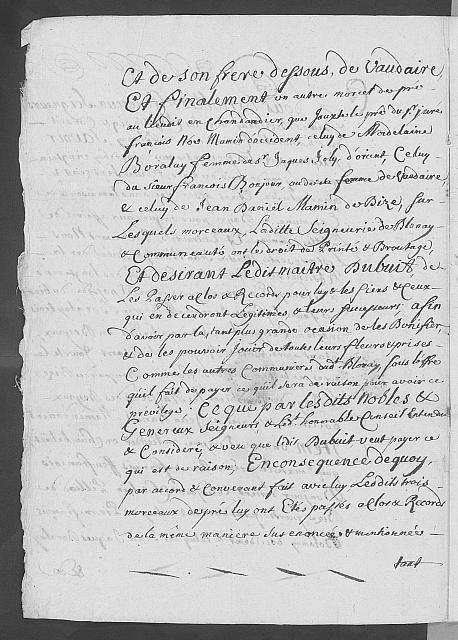 Et de son frere dessous, de Vaudaire,
Et finalement un autre morcel de pré
au lieudit en Chandandier, que Jouxte le pré du Sr. juré
françois Noé Mamin d'occident, celuy de Madelaine
Boraluy femme du Sr. Jaques Joly, d'orient, Celuy
du Sieur François Bonjour, au droit de sa femme de Vaudaire
& celuy de Jean Daniel Mamin de Bize, sur
Lesquels morceaux, Laditte Seigneurie de Blonay
& Communeauté ont les droits du Printé & Broutage,
Et desirant Ledit maitre Dubuit, de
Les Passer a clos & Record, pour luy & les siens & ceux
qui en deviendront Legitimes, & leurs successeurs, afin
d'avoir par la, tant plus grande ocasion de les Bonifier
et de les pouvoir Jouir de toute leurs fleurs & prises
Comme les autres Communiers dudt. Blonay, sous l'offre
qu'il fait de payer ce qu'il sera de raison pour avoir ce
previlege; Ce que par lesdits Nobles &
Genereux Seigneurs & Ledt. honorable Conseil Entendu
& Consideré, & veu que ledit Dubuit veut payer ce
qui est de raison, En consequence de quoy,
par accord & Convenant fait avec luy Lesdits trois
morceaux de prés luy ont Etés passés a clos & Records
de la même maniere sus enoncée, & mentionnée
tant